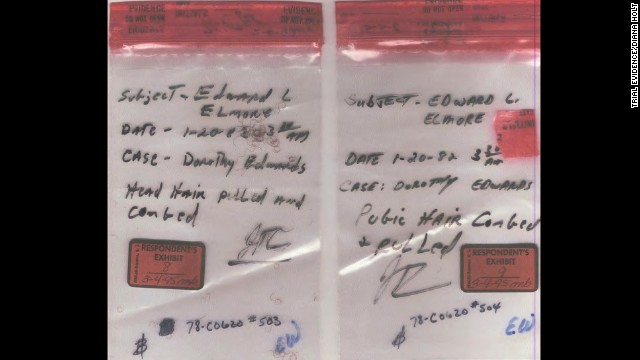 EVIDENCE
Subject - Edward L
Elmore
Date - 1-20-82 3 AM
Case - Dorothy Edwards
Head Hair pulled and
combed
JTC
RESPONDENT'S
EXHIBIT
8
3-4-95 mb
78-C0620 #503
EW
Subject - Edward L.
Elmore
Date 1-20-82 3 30 AM
Case: Dorothy Edwards
Pubic Hair Combed
+ pulled
RESPONDENT'S
EXHIBIT
9
3-4-95 mb
78-C0620 #504
EW
TRIAL EVIDENCE/DIANA HOLT